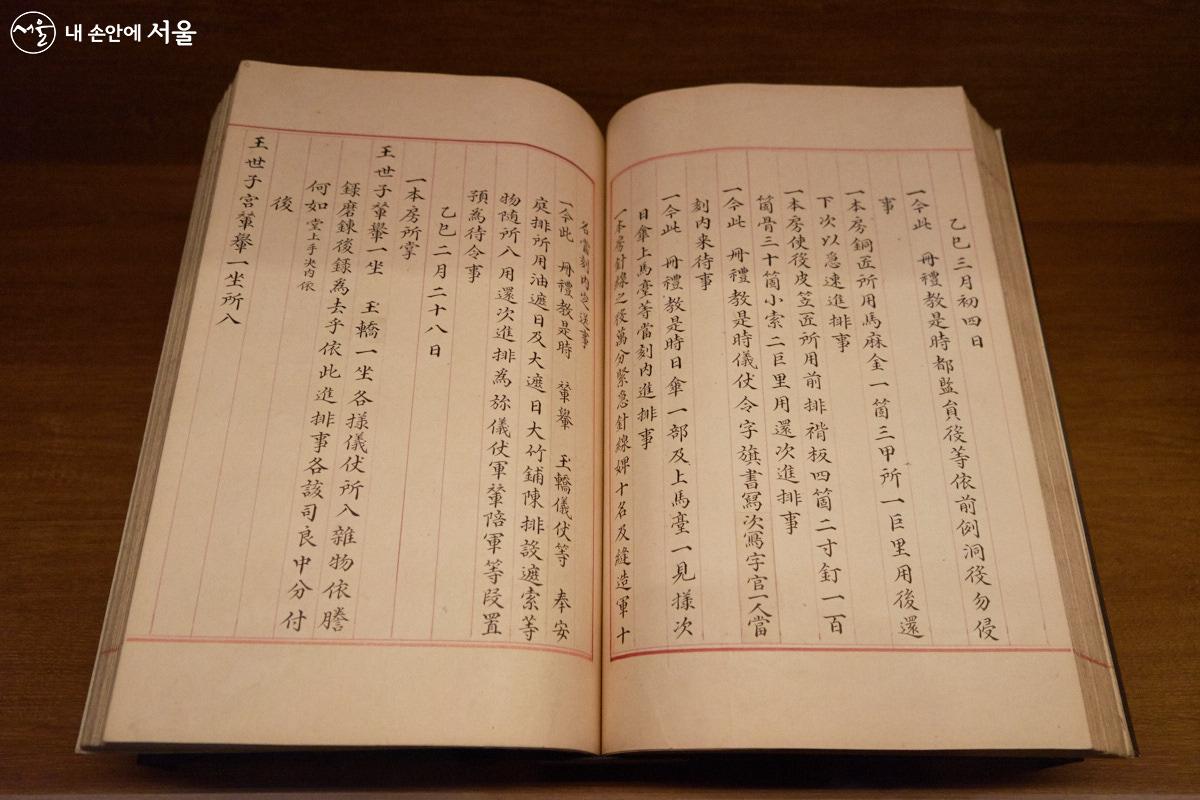 서울 내 손안에 서울
乙巳三月初四日
一今此 冊禮教是時都監負役等依前例洞役勿侵
事
一本房銅匠所用馬麻金一箇三甲所一巨里用後還
下次以急速進排事
一本房使役皮笠匠所用前排褙板四箇二寸釘一百
箇骨三十箇小索二巨里用還次進排事
一今此 冊禮教是時儀仗令字旗書寫次寫字官一人當
刻內来待事
一今此 冊禮教是時日傘一部及上馬臺一見㨾次
日傘上馬臺等當刻內進排事
一本房針線之役萬分緊急針線婢十名及縫造軍十
名當刻內起送事
一今此 冊禮教是時 輦轝 玉轎儀仗等 奉安
庭排所用油遮日及大遮日大竹鋪陳排設遮索等
物随所入用還次進排為旀儀仗軍輦陪軍等段置
預為待令事
乙巳二月二十八日
一本房所掌
王世子輦轝一坐 玉轎一坐各樣儀仗所入雜物依謄
錄磨鍊後錄為去乎依此進排事各該司良中分付
何如堂上手决內依
後
王世子宮輦轝一坐所入